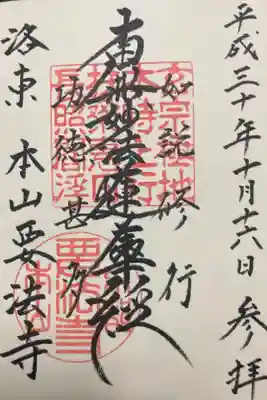 平成三十年十月十六日 参拝
如説修行
南無妙法蓮華経
功徳甚多
洛東 本山要法寺